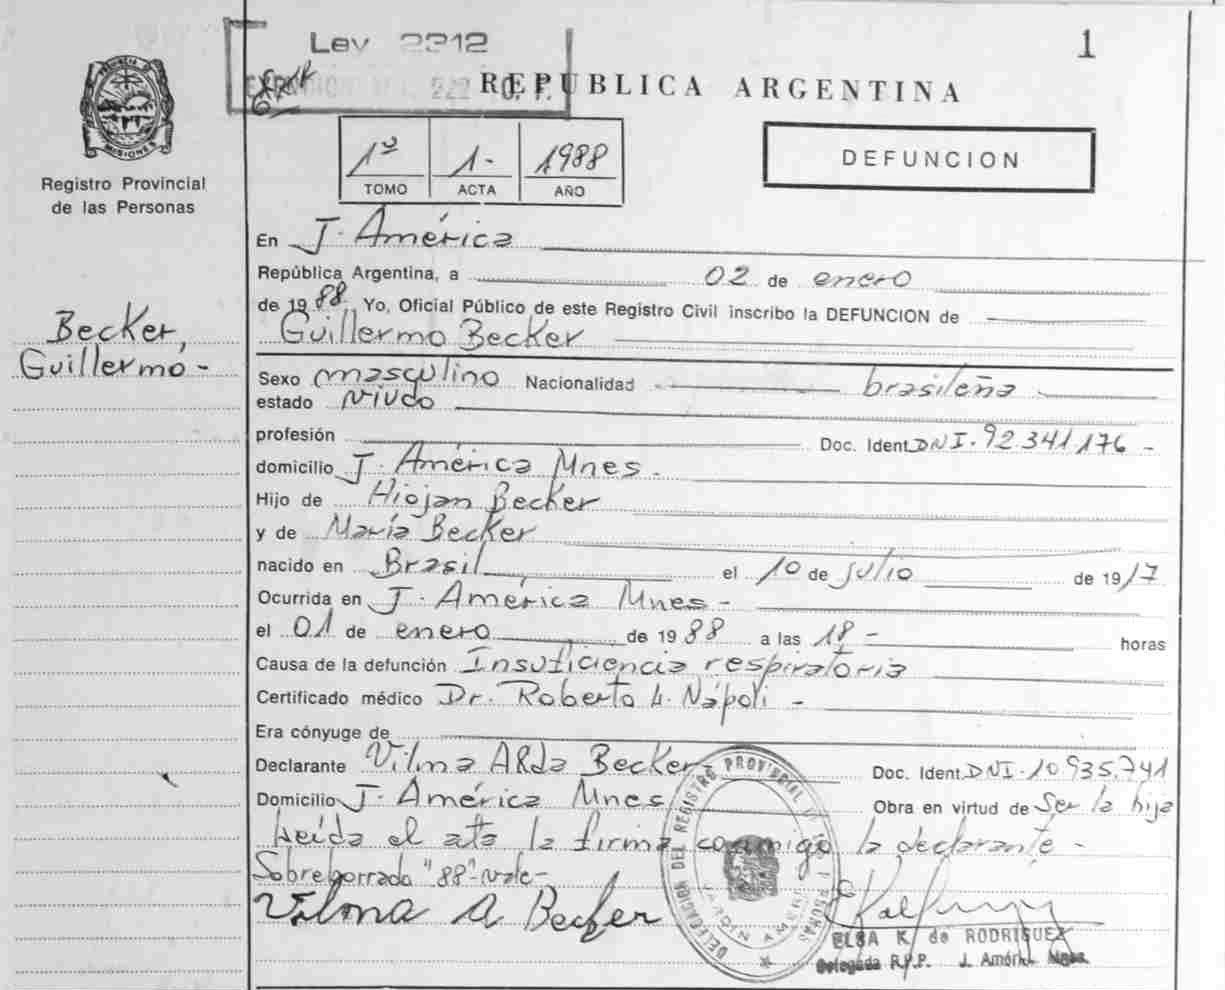 Ley 2212
1
REPUBLICA ARGENTINA
PROVINCIA DE
MISIONES
Registro Provincial
de las Personas
1º 1- 1988
TOMO ACTA AÑO
DEFUNCION
En J. América
República Argentina, a 02 de enero
de 1988. Yo, Oficial Público de este Registro Civil inscribo la DEFUNCION de
Guillermo Becker
Becker,
Guillermo -
Sexo masculino Nacionalidad brasileña
estado viudo
profesión Doc. Ident. DNI. 92.341.176 -
domicilio J. América Mnes -
Hijo de Hiojan Becker
y de María Becker
nacido en Brasil el 10 de julio de 1917
Ocurrida en J. América Mnes -
el 01 de enero de 1988 a las 18 - horas
Causa de la defunción Insuficiencia respiratoria
Certificado médico Dr. Roberto L. Nápoli -
Era cónyuge de
Declarante Vilma Alda Becker Doc. Ident. DNI. 10.935.741
Domicilio J. América Mnes Obra en virtud de Ser la hija
Leída el acta la firma conmigo la declarante -
Sobreborrado "88" vale -
Vilma A Becker
DELEGACION DEL REGISTRO PROVINCIAL DE LAS PERSONAS
JARDIN AMERICA
ELSA K. de RODRIGUEZ
Delegada R.P.P. J. América Mnes.